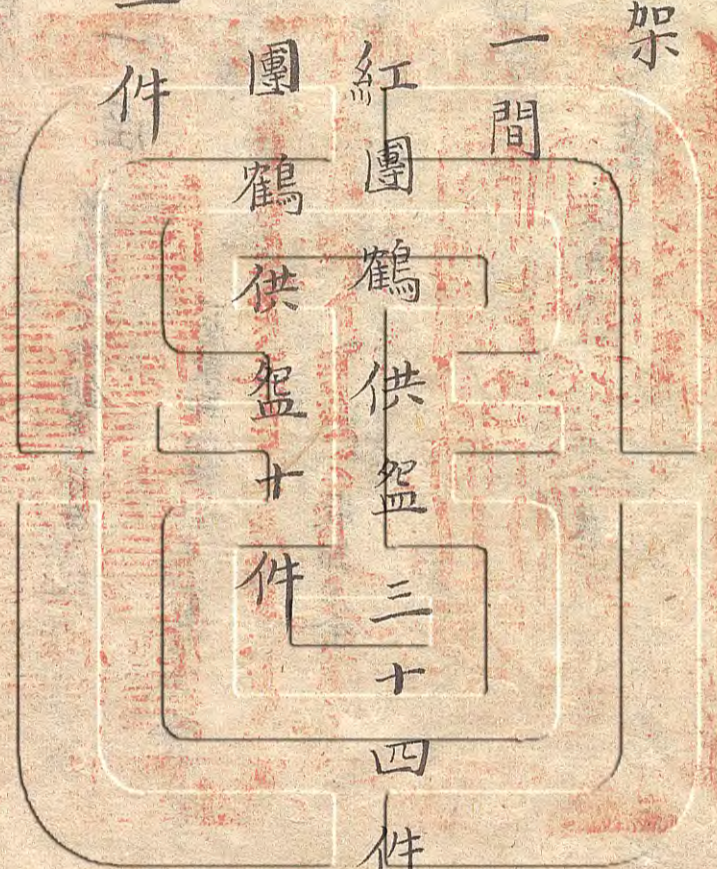 架
一間
紅團鶴供盌三十四件
團鶴供盌十件
件